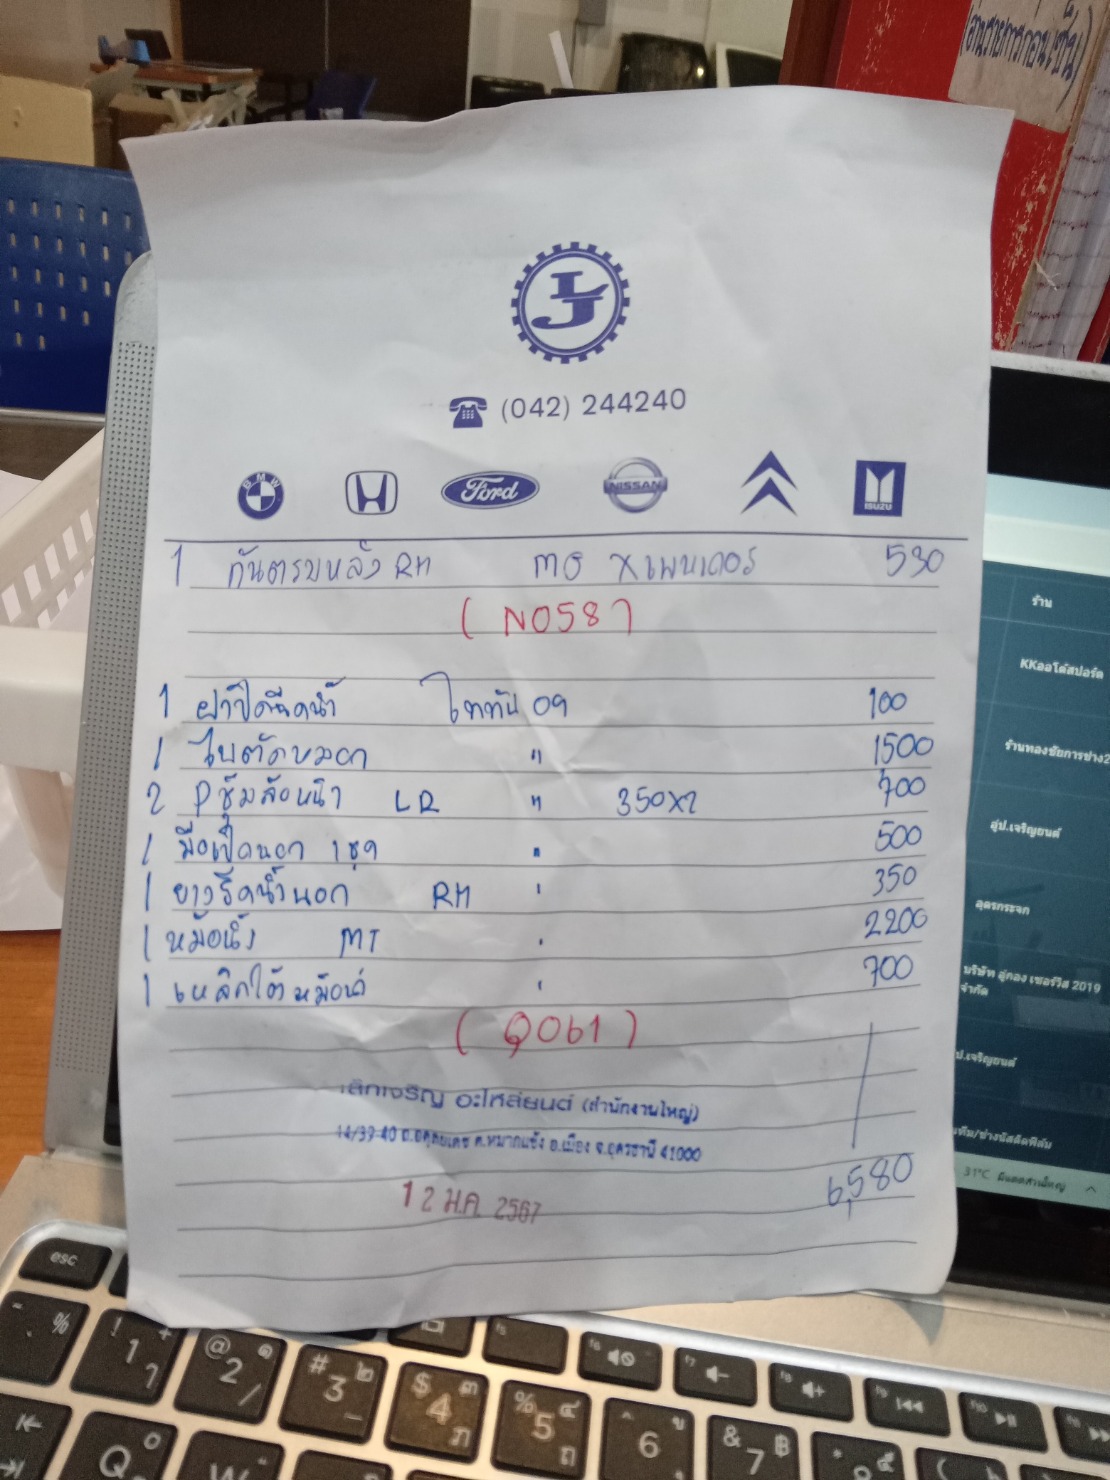 (อ่านรายการก่อนเซ็น)
LJ
☎ (042) 244240
BMW H Ford NISSAN ISUZU
1 กันตรบหลัง RH MG Xเพนเดอร์ 530
(N0587)
1 ฝาปิดฉีดน้ำ ไททัน 09 100
1 ไบตัดหมอก " 1500
2 Pซุ้มล้อหน้า LR " 350x2 700
1 มือเปิดนอก 1ชุด " 500
1 ยางรีดน้ำนอก RH " 350
1 หม้อน้ำ MT " 2200
1 เหล็กใต้หม้อน้ำ " 700
(Q061)
เลิกเจริญ อะไหล่ยนต์ (สำนักงานใหญ่)
14/39-40 ถ.อดุลยเดช ต.หมากแข้ง อ.เมือง จ.อุดรธานี 41000
6,580
12 ม.ค. 2567
ร้าน
KKออโต้สปอร์ต
ร้านทองชัยการช่าง2
อู่ป.เจริญยนต์
อุดรกระจก
บริษัท อู่กอง เซอร์วิส 2019
จำกัด
ป.เจริญยนต์
31°C มีแดดส่วนใหญ่
esc